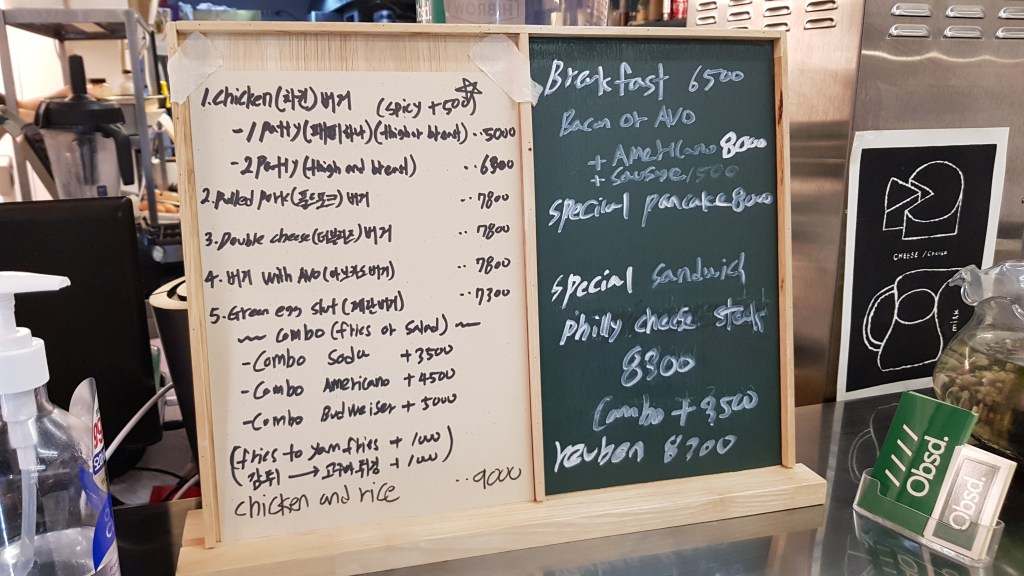 1. chicken (치킨) 버거 (spicy +500)
- 1 patty (패티하나) (thigh or breast) ..5000
- 2 patty (thigh and breast) ..6800
2. Pulled pork (풀드포크) 버거 ..7800
3. Double cheese (더블치즈) 버거 ..7800
4. 버거 with AVO (아보카도버거) ..7800
5. Green egg slut (계란버거) ..7300
~ Combo (fries or salad) ~
- Combo Soda +3500
- Combo Americano +4500
- Combo Budweiser +5000
(fries to yam fries +1000)
(감튀 → 고구마튀김 +1000)
chicken and rice ..9000
Breakfast 6500
Bacon or AVO
+ Americano 8000
+ Sausage 1500
special pancake 8000
special sandwich
philly cheese steak
8300
Combo + 3500
reuben 8700
CHEESE /
milk
Obsd.
Obsd.